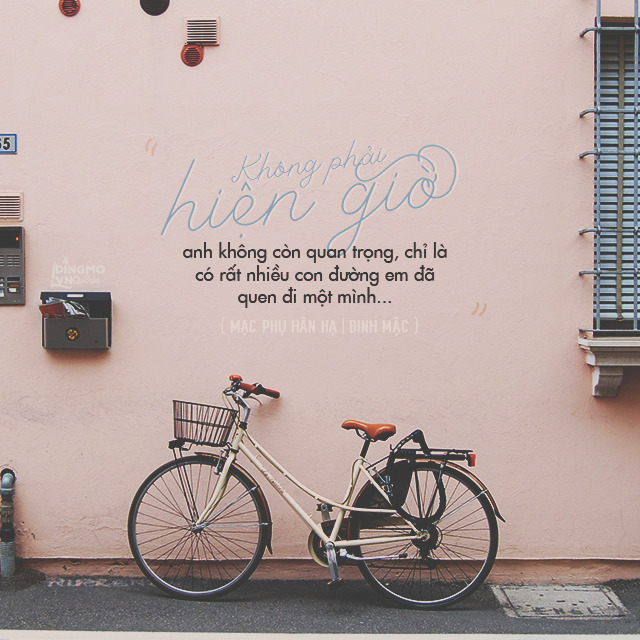 65
“
Không phải
hiện giờ
anh không còn quan trọng, chỉ là
có rất nhiều con đường em đã
quen đi một mình...
”
{ MẠC PHỤ HÀN HẠ | ĐINH MẶC }